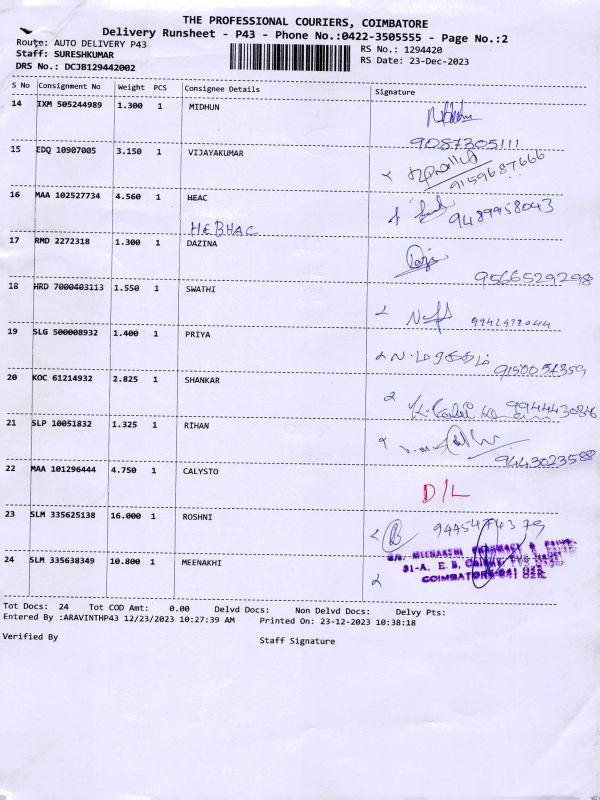 THE PROFESSIONAL COURIERS, COIMBATORE
Delivery Runsheet - P43 - Phone No.:0422-3505555 - Page No.:2
Route: AUTO DELIVERY P43 RS No.: 1294420
Staff: SURESHKUMAR RS Date: 23-Dec-2023
DRS No.: DCJB129442002
S No Consignment No Weight PCS Consignee Details Signature
14 IXM 505244989 1.300 1 MIDHUN
9087305111
15 EDQ 10907005 3.150 1 VIJAYAKUMAR
9159687666
16 MAA 102527734 4.560 1 HEAC
9489958043
HEBHAC
17 RMD 2272318 1.300 1 DAZINA
9566529298
18 HRD 7000403113 1.550 1 SWATHI
19 SLG 500008932 1.400 1 PRIYA
9150051359
20 KOC 61214932 2.825 1 SHANKAR
9944430846
21 SLP 10051832 1.325 1 RIHAN
9443023588
22 MAA 101296444 4.750 1 CALYSTO
D/L
23 SLM 335625138 16.000 1 ROSHNI
24 SLM 335638349 10.800 1 MEENAKHI
MEENAKSHI PHARMACY
31-A, E. B.
COIMBATORE-641 025
Tot Docs: 24 Tot COD Amt: 0.00 Delvd Docs: Non Delvd Docs: Delvy Pts:
Entered By :ARAVINTHP43 12/23/2023 10:27:39 AM Printed On: 23-12-2023 10:38:18
Verified By Staff Signature